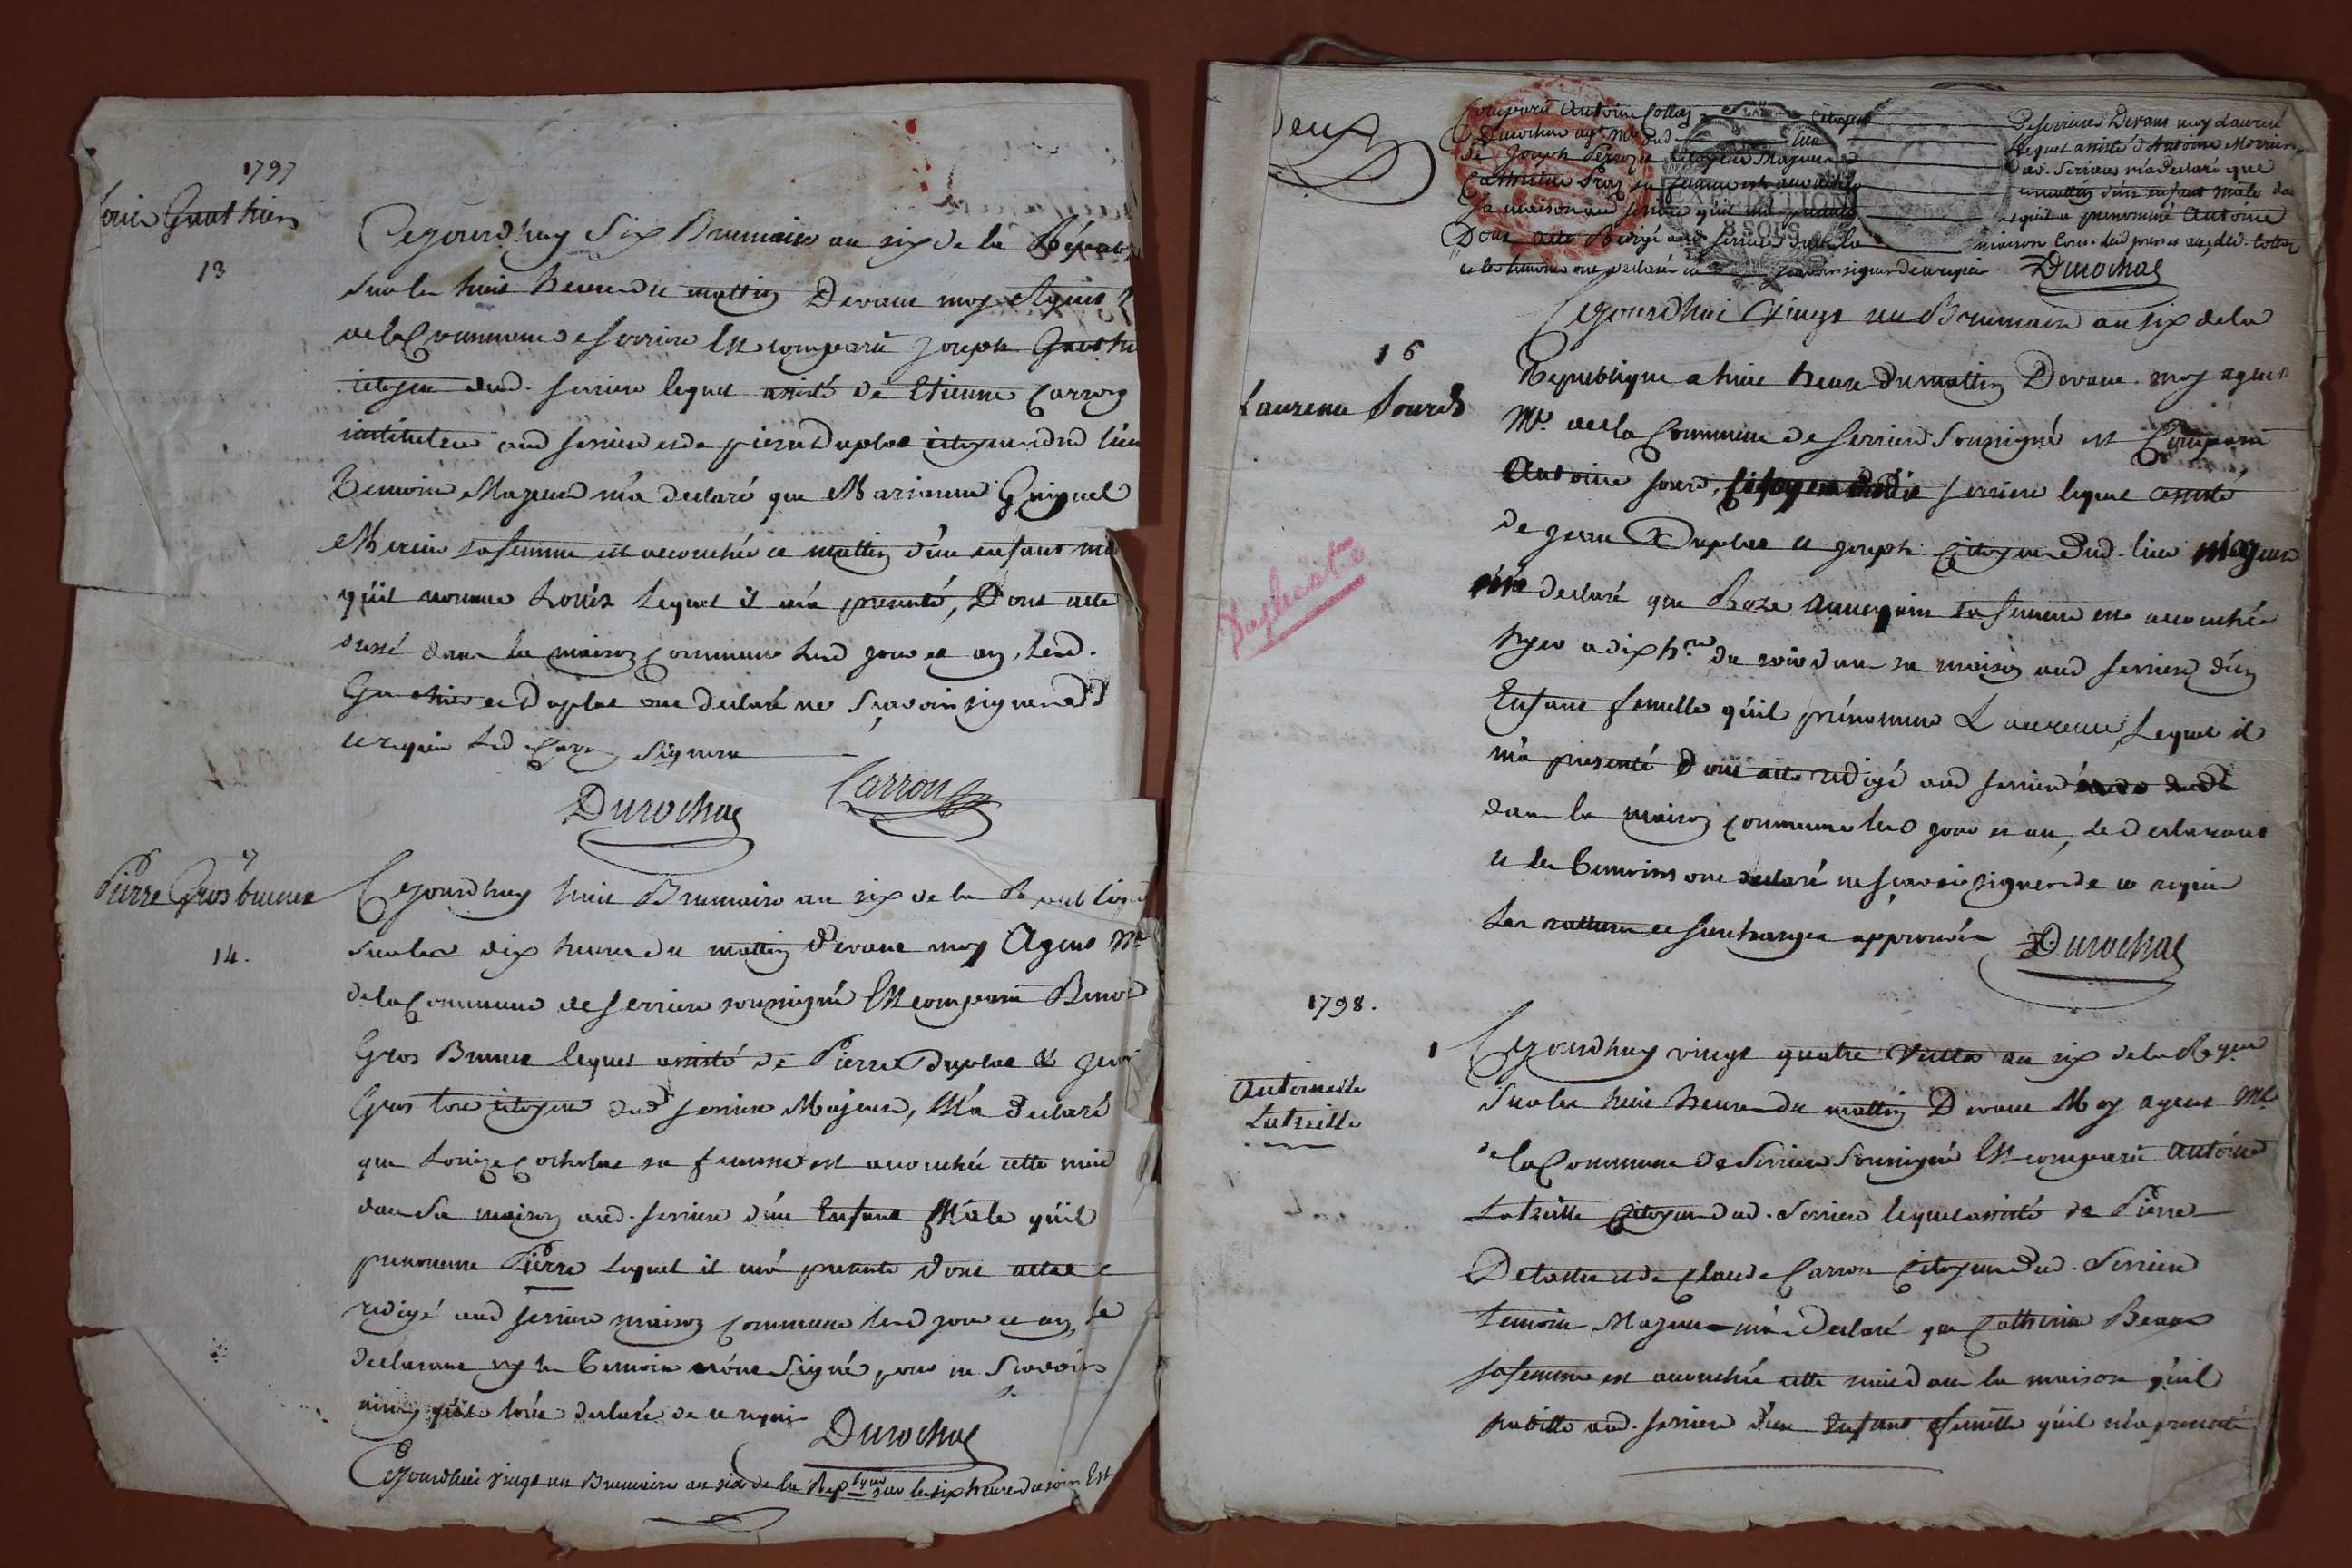 1797
Louis Gauthier
13
Cejourd'huy Six Brumaire an six de la Répub
Sur les huit heures du mattin Devant moy Agent
de la Commune de Serriere Est comparu Joseph Gauthi
citoyen dud. Serriere lequel assisté de Etienne Carron
instituteur aud Serriere et de pierre Duplas citoyen dud lieu
Temoins Majeurs m'a declaré que Marianne Guiguel
Mercier sa femme est accouchée ce mattin d'un enfant ma
qu'il nomme Louis Lequel il m'a presenté, Dont acte
dressé dans la maison Commune Led jour et an, Led.
Gauthier et Duplas ont declaré ne Sçavoir signer
ce requis Led Carron Signera
Durochas Carron
Pierre Gros brunet
14.
Cejourdhuy huit Brumaire an six de la Republique
Sur les dix heures du mattin Devant moy Agent Mal
de la Commune de Serriere soussigné Est comparu Benoit
Gros Brunet lequel assisté de Pierre Duplas & Jean
Gros tous citoyens dud Serriere Majeurs, M'a declaré
que Louize Cochelas sa femme est accouchée cette nuit
dans Sa maison aud. Serriere d'un Enfant Male qu'il
prenomme Pierre Lequel il m'a presenté dont acte
redigé aud Serriere maison Commune Led jour et an, Le
declarant ny les temoins n'ont Signé, pour ne Sçavoir
ainsy qu'ils l'ont declaré de ce requis
Durochas
Cejourdhui vingt un Brumaire an six de la Repque sur les six heures du soir Est
Deux
Comparu Antoine Collas citoyen De Serrieres Devant moy Laurent
Durochas agt Mal dud lieu Lequel assisté d'Antoine Mercier
de Joseph citoyens Majeurs dud. Serrieres m'a declaré que
Catherine sa femme est accouchée ce mattin d'un enfant male da
Sa maison aud Serriere qu'il m'a presenté lequel a prenommé Antoine
Dont acte Redigé aud Serriere dans la maison Com. Led jour et an, Led. Collas
et les temoins ont declaré ne sçavoir signer de ce requis Durochas
EXPEDITION
8 SOLS
16
Laurence Sourd
Cejourdhui Vingt un Brumaire an six de la
Republique a huit heures du mattin Devant moy agent
Mal. de la Commune de Serriere Soussigné est Comparu
Antoine Sourd, Citoyen dudit Serriere lequel assisté
de Jean Duplas et Joseph Citoyens Dud. lieu Majeurs
m'a declaré que Roze sa femme est accouchée
hyer a dix hres du soir dans sa maison aud Serriere d'un
Enfant femelle qu'il prénomme Laurence, Lequel il
m'a presenté Dont acte redigé aud Serriere
dans la maison Commune Led jour et an, Le declarant
et les temoins ont declaré ne sçavoir signer de ce requis
Les ratures et surcharges approuvées Durochas
1798.
1
Antoinette
Latreille
Cejourdhuy vingt quatre an six de la Repque
Sur les huit heures du mattin Devant Moy agent Mal
de la Commune De Serriere Soussigné Est comparu Antoine
Latreille Citoyen dud. Serriere lequel assisté de Pierre
et de Claude Carron Citoyens Dud. Serriere
temoins Majeurs m'a Declaré que Catherine Beaux
sa femme est accouchée cette nuit dans la maison qu'il
habitte aud. Serriere d'un Enfant femelle qu'il m'a presenté